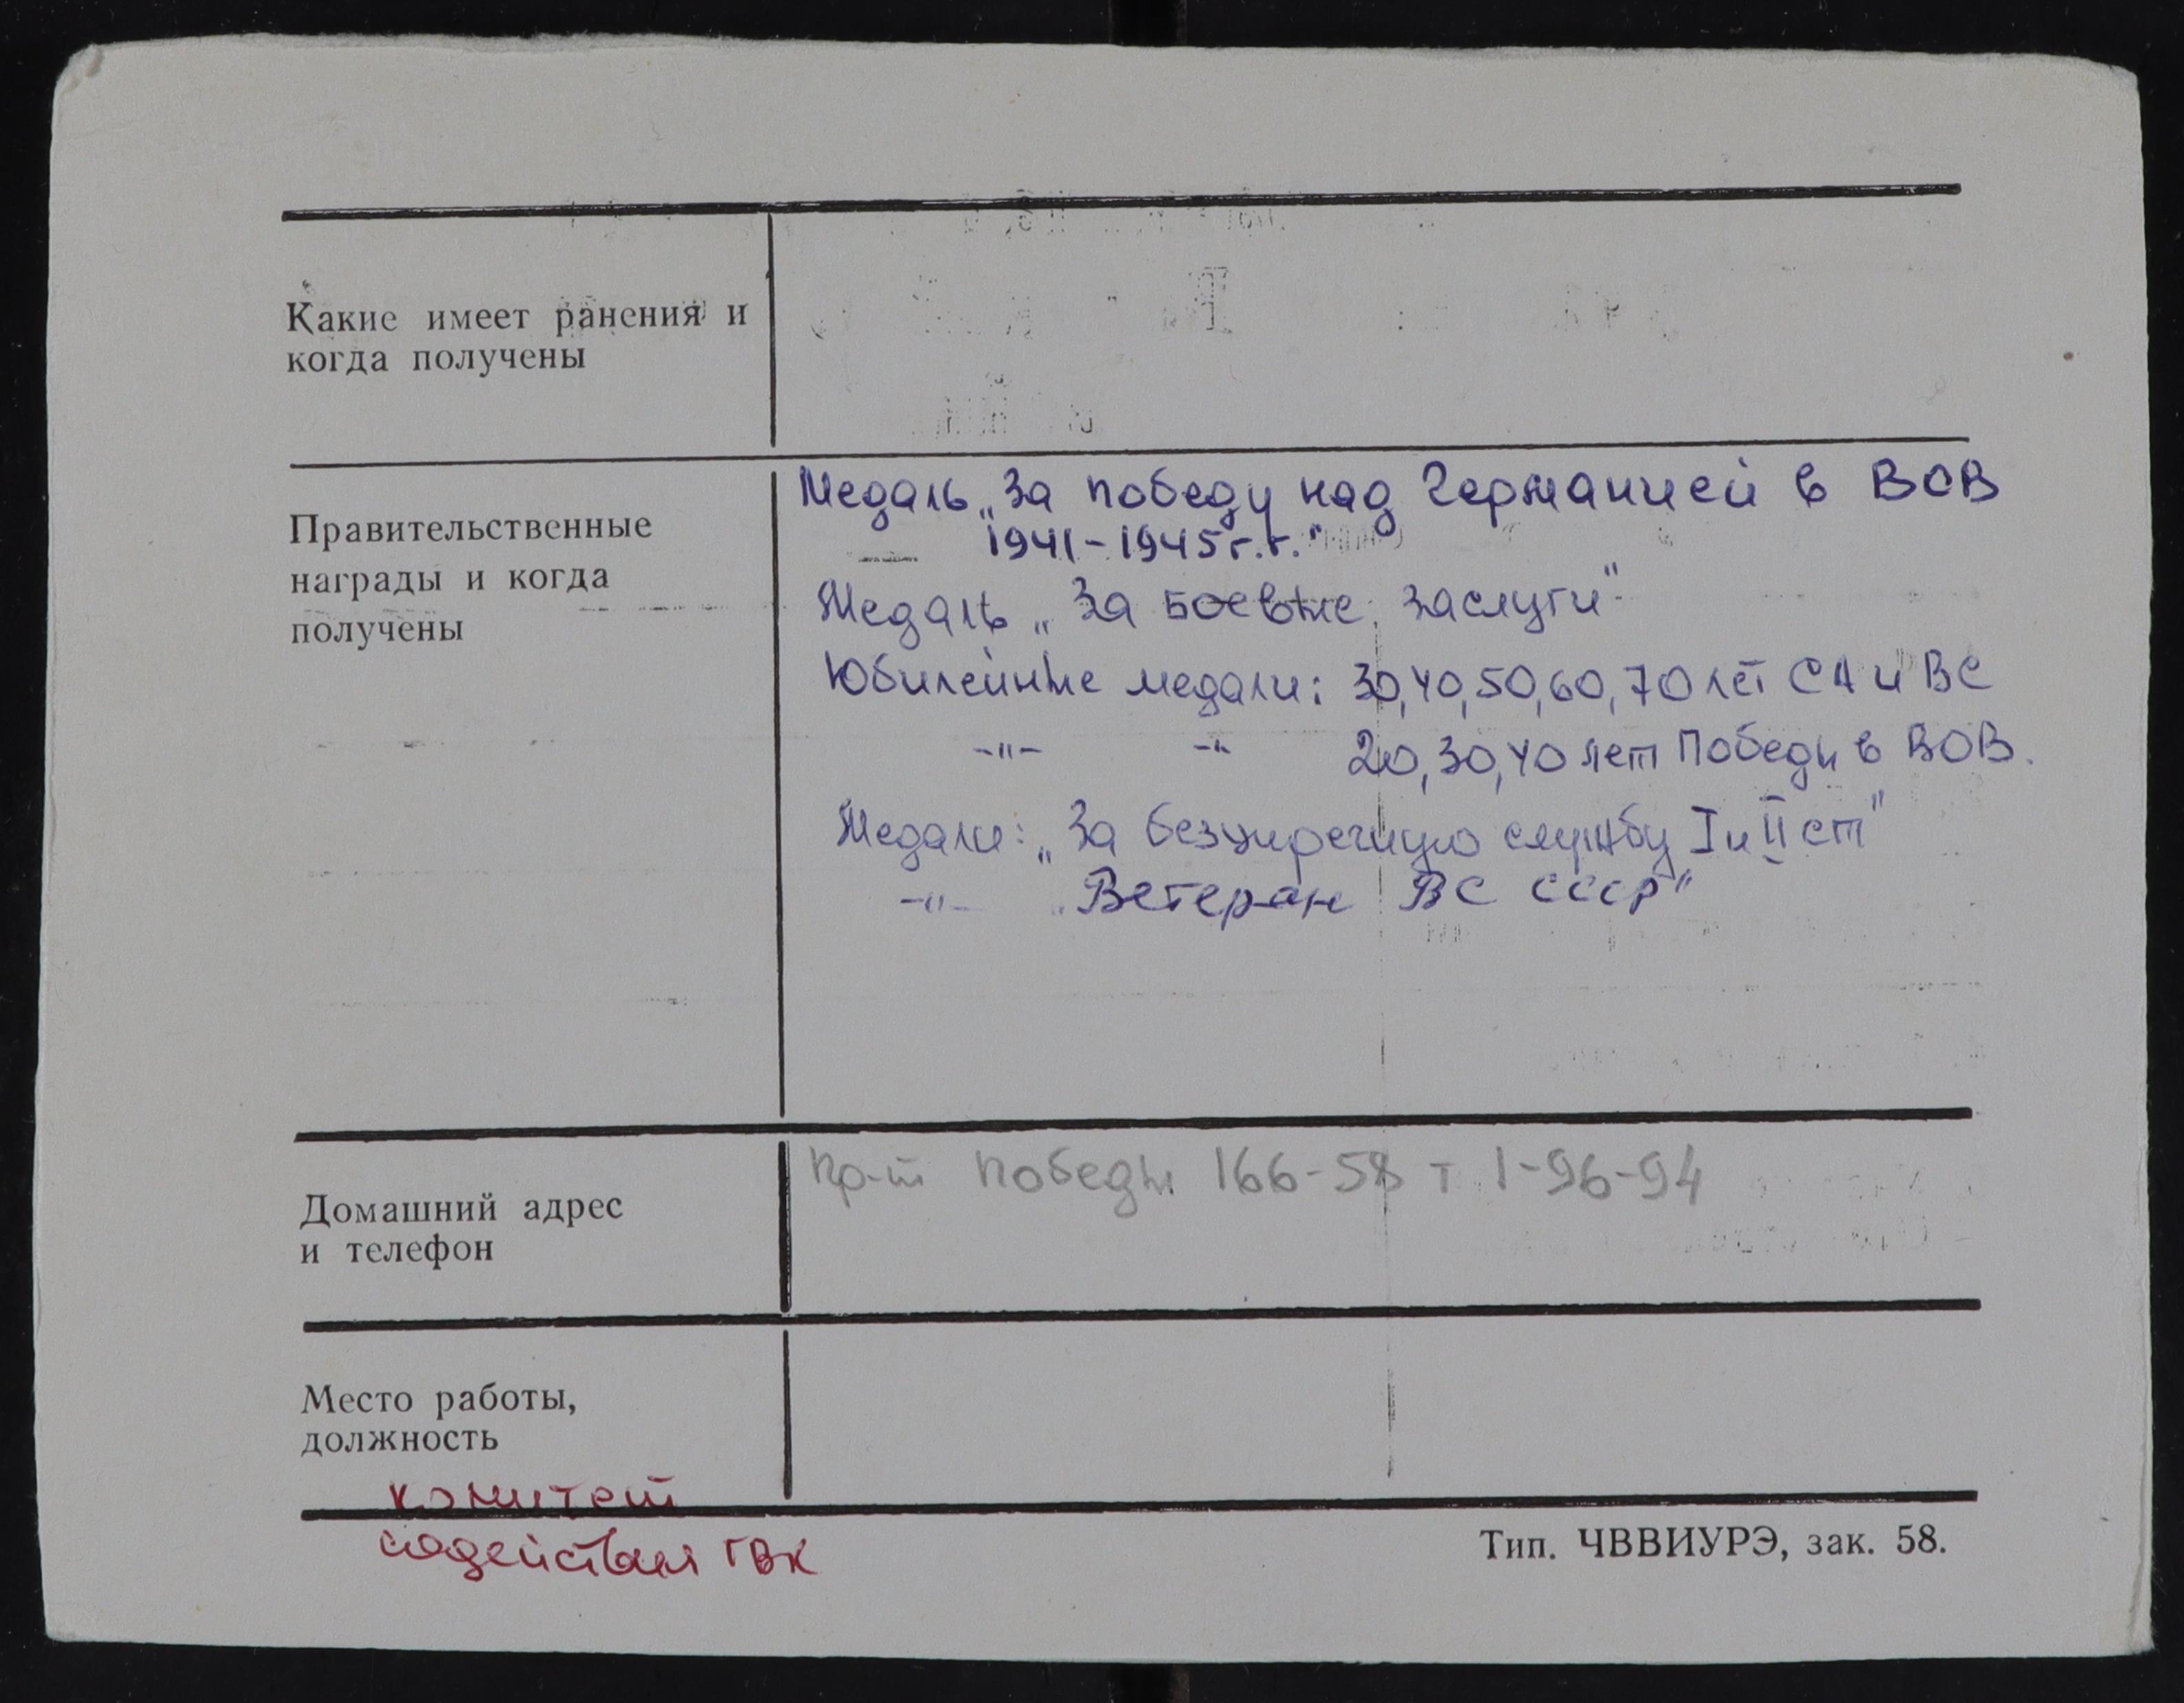 Какие имеет ранения и
когда получены
Правительственные
награды и когда
получены
Медаль „За победу над Германией в ВОВ
1941-1945г.г."
Медаль „За боевые заслуги"
Юбилейные медали: 30,40,50,60,70 лет СА и ВС
-"- -"- 20,30,40 лет Победы в ВОВ.
Медали: „За безупречную службу I и II ст"
-"- „Ветеран ВС СССР"
Домашний адрес
и телефон
пр-т Победы 166-58 т 1-96-94
Место работы,
должность
комитет
содействия ГВК
Тип. ЧВВИУРЭ, зак. 58.